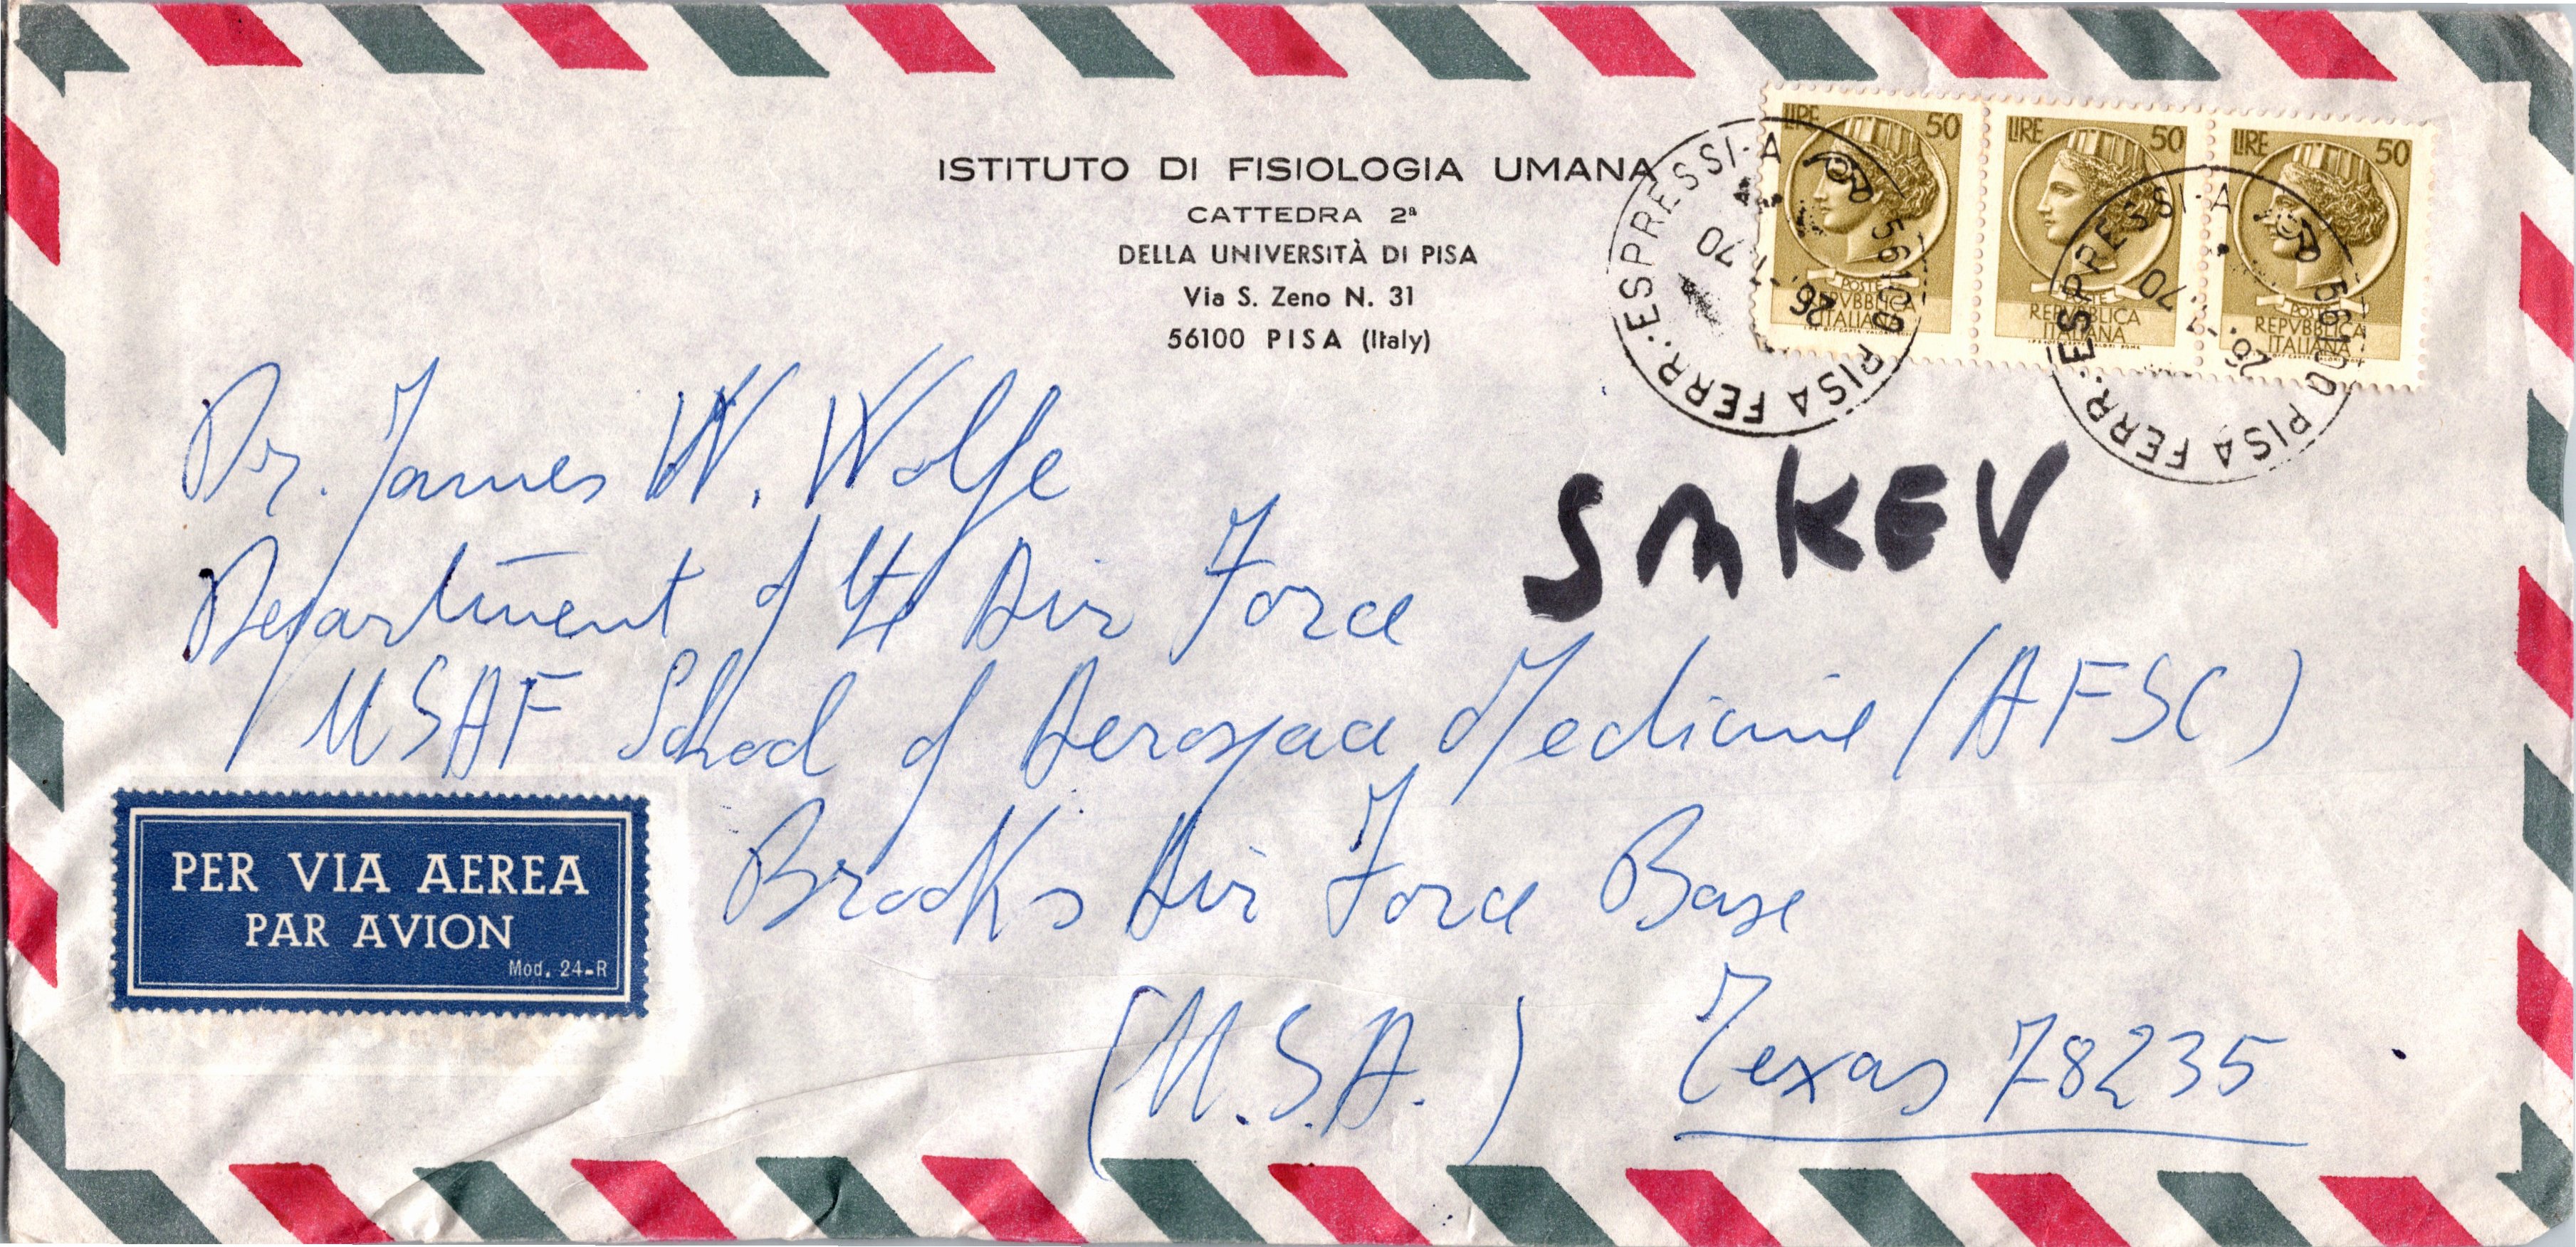 ISTITUTO DI FISIOLOGIA UMANA
CATTEDRA 2ª
DELLA UNIVERSITÀ DI PISA
Via S. Zeno N. 31
56100 PISA (Italy)
LIRE 50
POSTE
REPVBBLICA
ITALIANA
LIRE 50
POSTE
REPVBBLICA
ITALIANA
LIRE 50
POSTE
REPVBBLICA
ITALIANA
56100 PISA FERR. ESPRESSI-A
70
56100 PISA FERR. ESPRESSI-A
70
SMKEV
Dr. James W. Wolfe
Department of the Air Force
USAF School of Aerospace Medicine (AFSC)
Brooks Air Force Base
(U.S.A.) Texas 78235
PER VIA AEREA
PAR AVION
Mod. 24-R